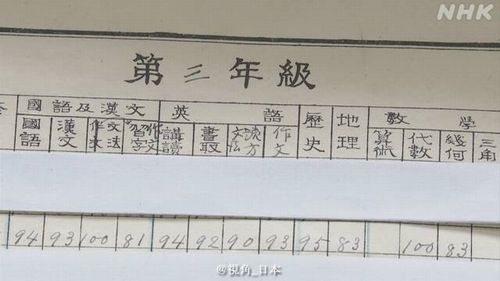 NHK
第三年級
國語及漢文 英語 歷史 地理 數學
國語 漢文 作文 文法 習字 講讀 書取 文法 作文 算術 代數 幾何 三角
94 93 100 81 94 92 90 93 95 83 100 83
@視角_日本